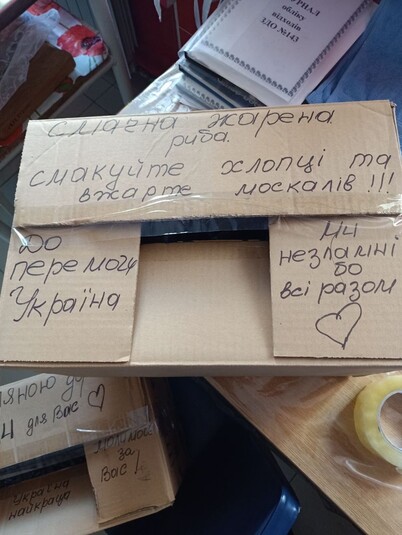 ЖУРНАЛ
обліку
відходів
ЗДО №143
смачна жарена
риба.
смакуйте хлопці та
вжарте москалів !!!
До
перемоги
Україна
Ми
незламні
бо
всі разом
для Вас
за
Вас!
Україна
найкраща